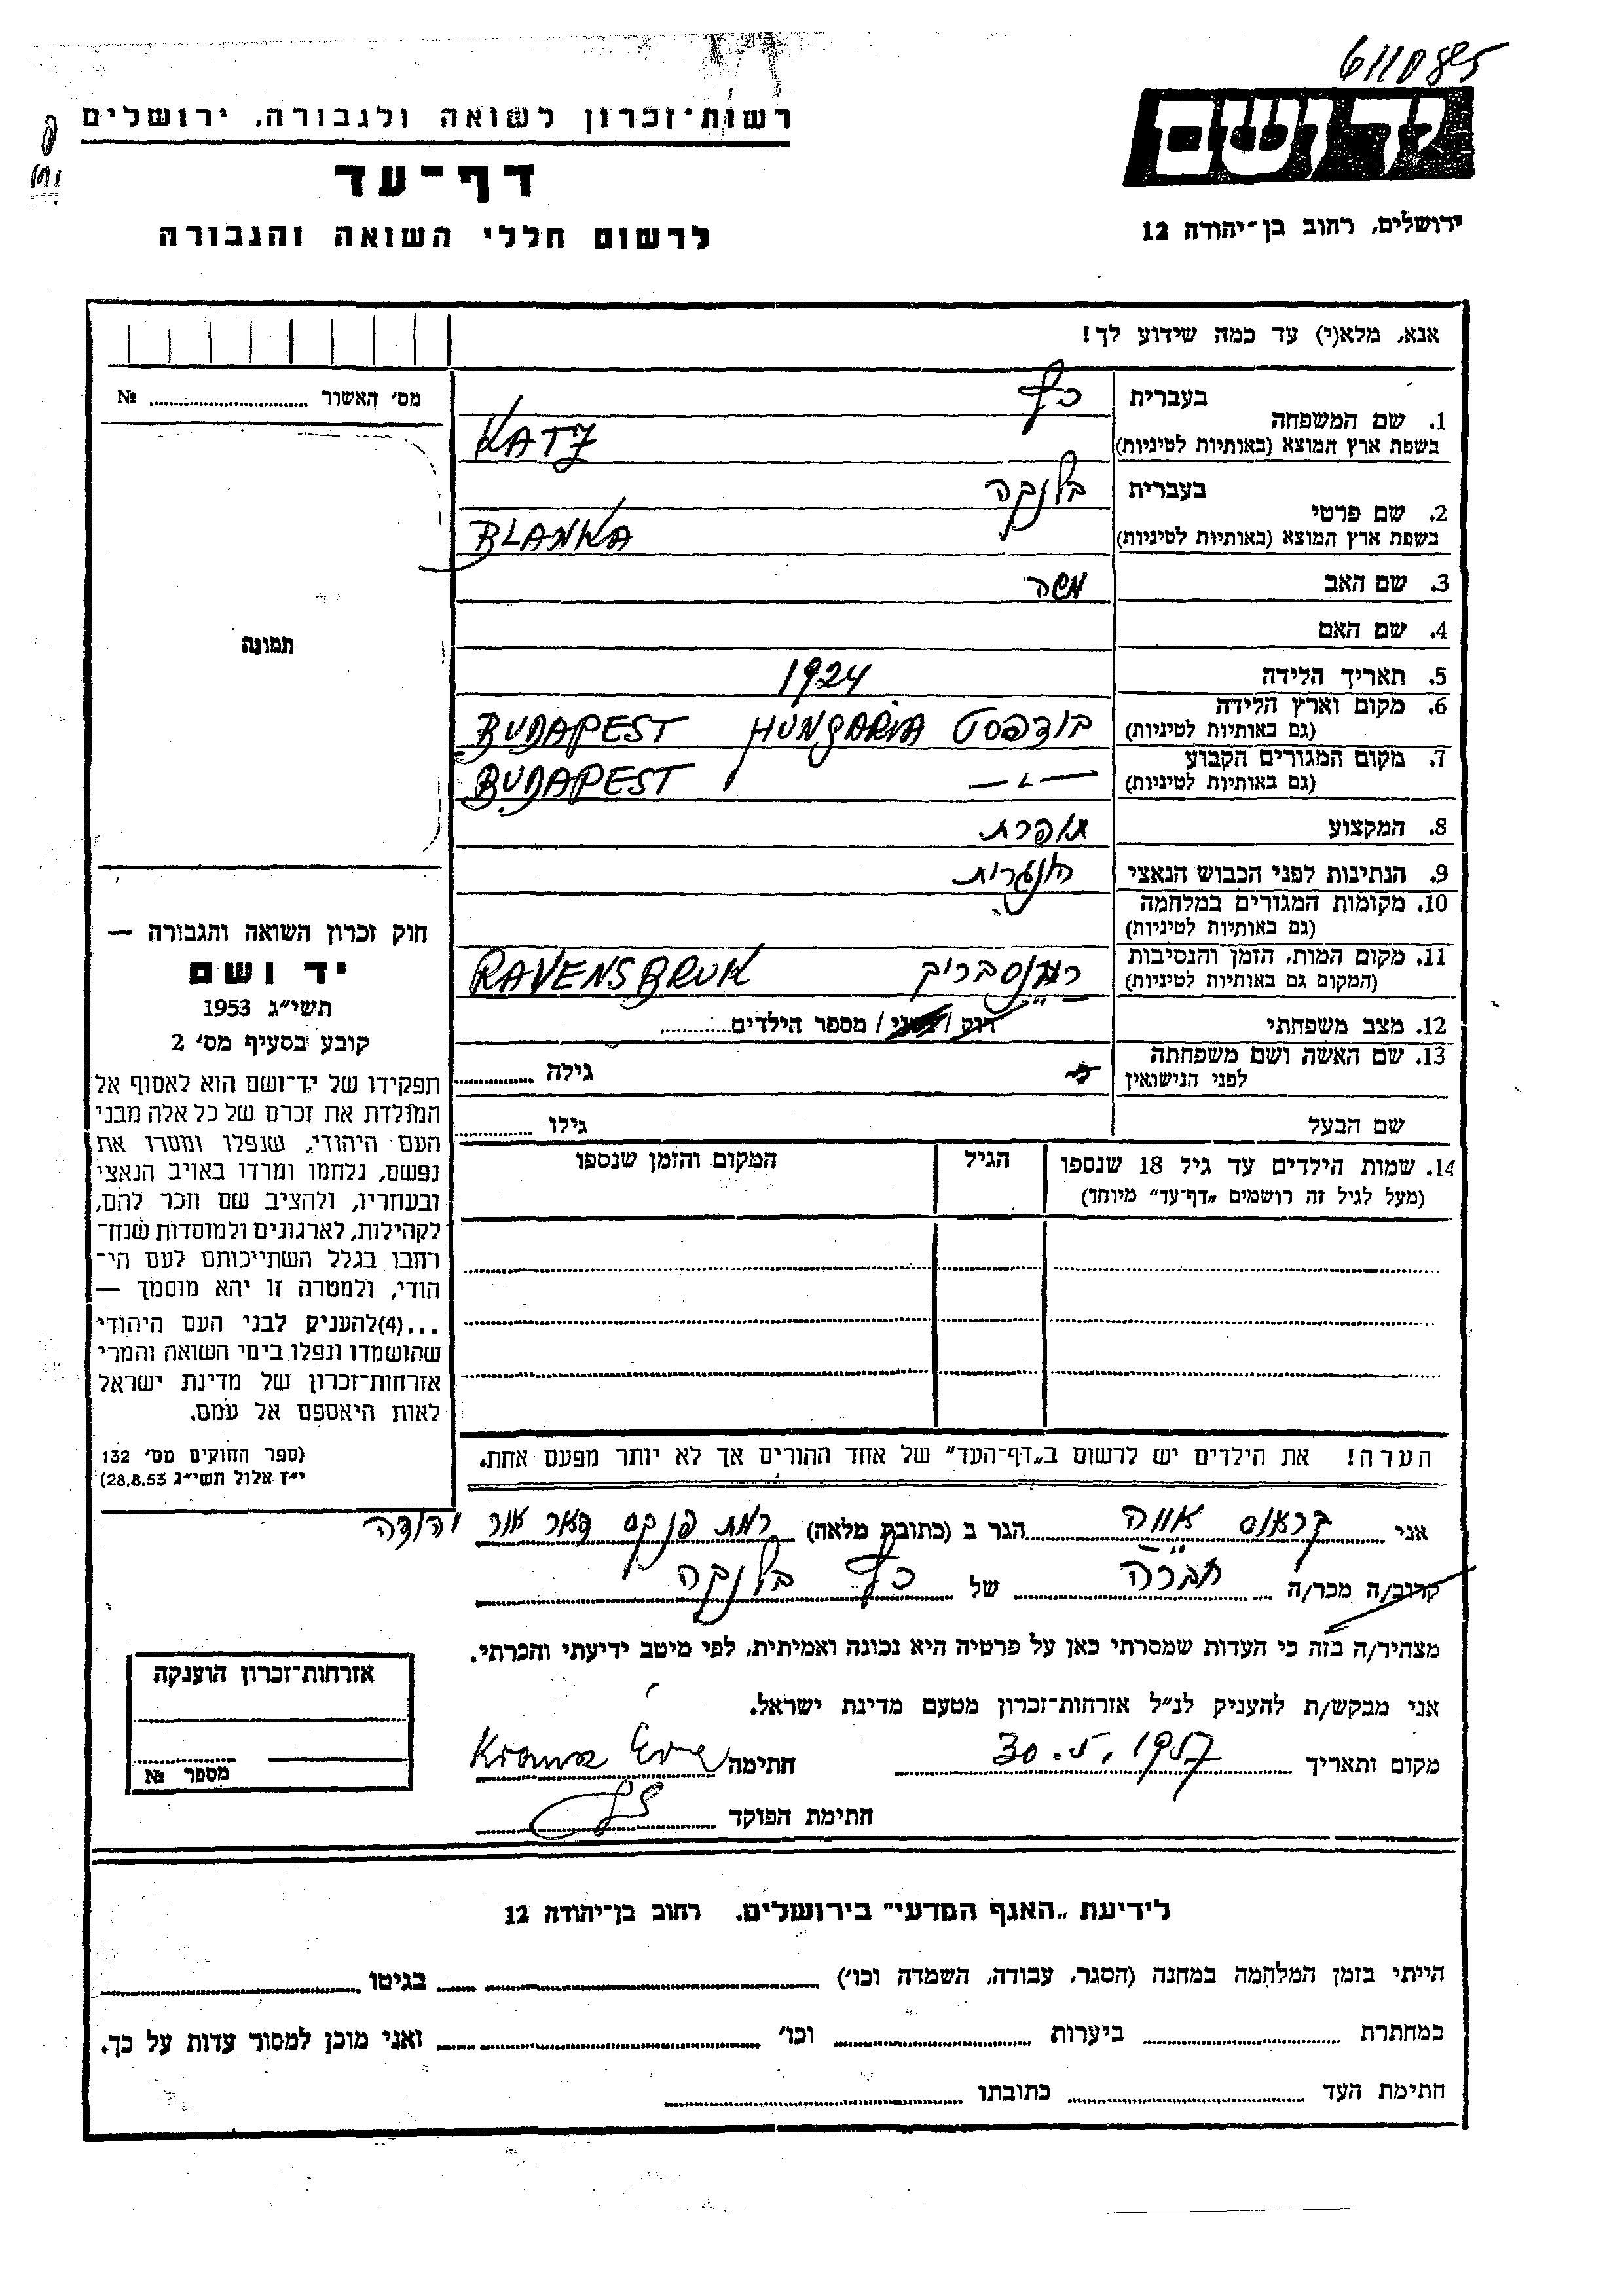 6110885
רשות־זכרון לשואה ולגבורה, ירושלים
דף־עד
לרשום חללי השואה והגבורה
יד ושם
ירושלים, רחוב בן־יהודה 12
אנא, מלא(י) עד כמה שידוע לך!
מס׳ האשור № 
1. שם המשפחה בעברית כץ
בשפת ארץ המוצא (באותיות לטיניות) KATZ
2. שם פרטי בעברית בלנקה
בשפת ארץ המוצא (באותיות לטיניות) BLANKA
3. שם האב משה
4. שם האם
5. תאריך הלידה 1924
6. מקום וארץ הלידה (גם באותיות לטיניות) בודפסט HUNGARIA BUDAPEST
7. מקום המגורים הקבוע (גם באותיות לטיניות) —〃— BUDAPEST
8. המקצוע תופרת
9. הנתינות לפני הכבוש הנאצי הונגרית
10. מקומות המגורים במלחמה (גם באותיות לטיניות)
11. מקום המות, הזמן והנסיבות (המקום גם באותיות לטיניות) רוונסבריק RAVENSBRUK
12. מצב משפחתי רווק / נשוי / מספר הילדים
13. שם האשה ושם משפחתה לפני הנישואין גילה
שם הבעל גילו
14. שמות הילדים עד גיל 18 שנספו (מעל לגיל זה רושמים „דף־עד״ מיוחד)
הגיל
המקום והזמן שנספו
הערה! את הילדים יש לרשום ב„דף־העד״ של אחד ההורים אך לא יותר מפעם אחת.
תמונה
חוק זכרון השואה והגבורה —
יד ושם
תשי״ג 1953
קובע בסעיף מס׳ 2
תפקידו של יד־ושם הוא לאסוף אל
המולדת את זכרם של כל אלה מבני
העם היהודי, שנפלו ומסרו את
נפשם, נלחמו ומרדו באויב הנאצי
ובעוזריו, ולהציב שם וזכר להם,
לקהילות, לארגונים ולמוסדות שנח־
רבו בגלל השתייכותם לעם הי־
הודי, ולמטרה זו יהא מוסמך —
...(4)להעניק לבני העם היהודי
שהושמדו ונפלו בימי השואה והמרי
אזרחות־זכרון של מדינת ישראל
לאות היאספם אל עמם.
(ספר החוקים מס׳ 132
י״ז אלול תשי״ג 28.8.53)
אני קראוס אווה הגר ב (כתובת מלאה) רמת פנקס דאר אור יהודה
קרוב/ה מכר/ה חברה של כץ בלנקה
מצהיר/ה בזה כי העדות שמסרתי כאן על פרטיה היא נכונה ואמיתית, לפי מיטב ידיעתי והכרתי.
אני מבקש/ת להעניק לנ״ל אזרחות־זכרון מטעם מדינת ישראל.
מקום ותאריך 30.5.1957 חתימה Krausz Eva
חתימת הפוקד
אזרחות־זכרון הוענקה
מספר №
לידיעת „האגף המדעי״ בירושלים. רחוב בן־יהודה 12
הייתי בזמן המלחמה במחנה (הסגר, עבודה, השמדה וכו׳) בגיטו
במחתרת ביערות וכו׳ ואני מוכן למסור עדות על כך.
חתימת העד כתובתו